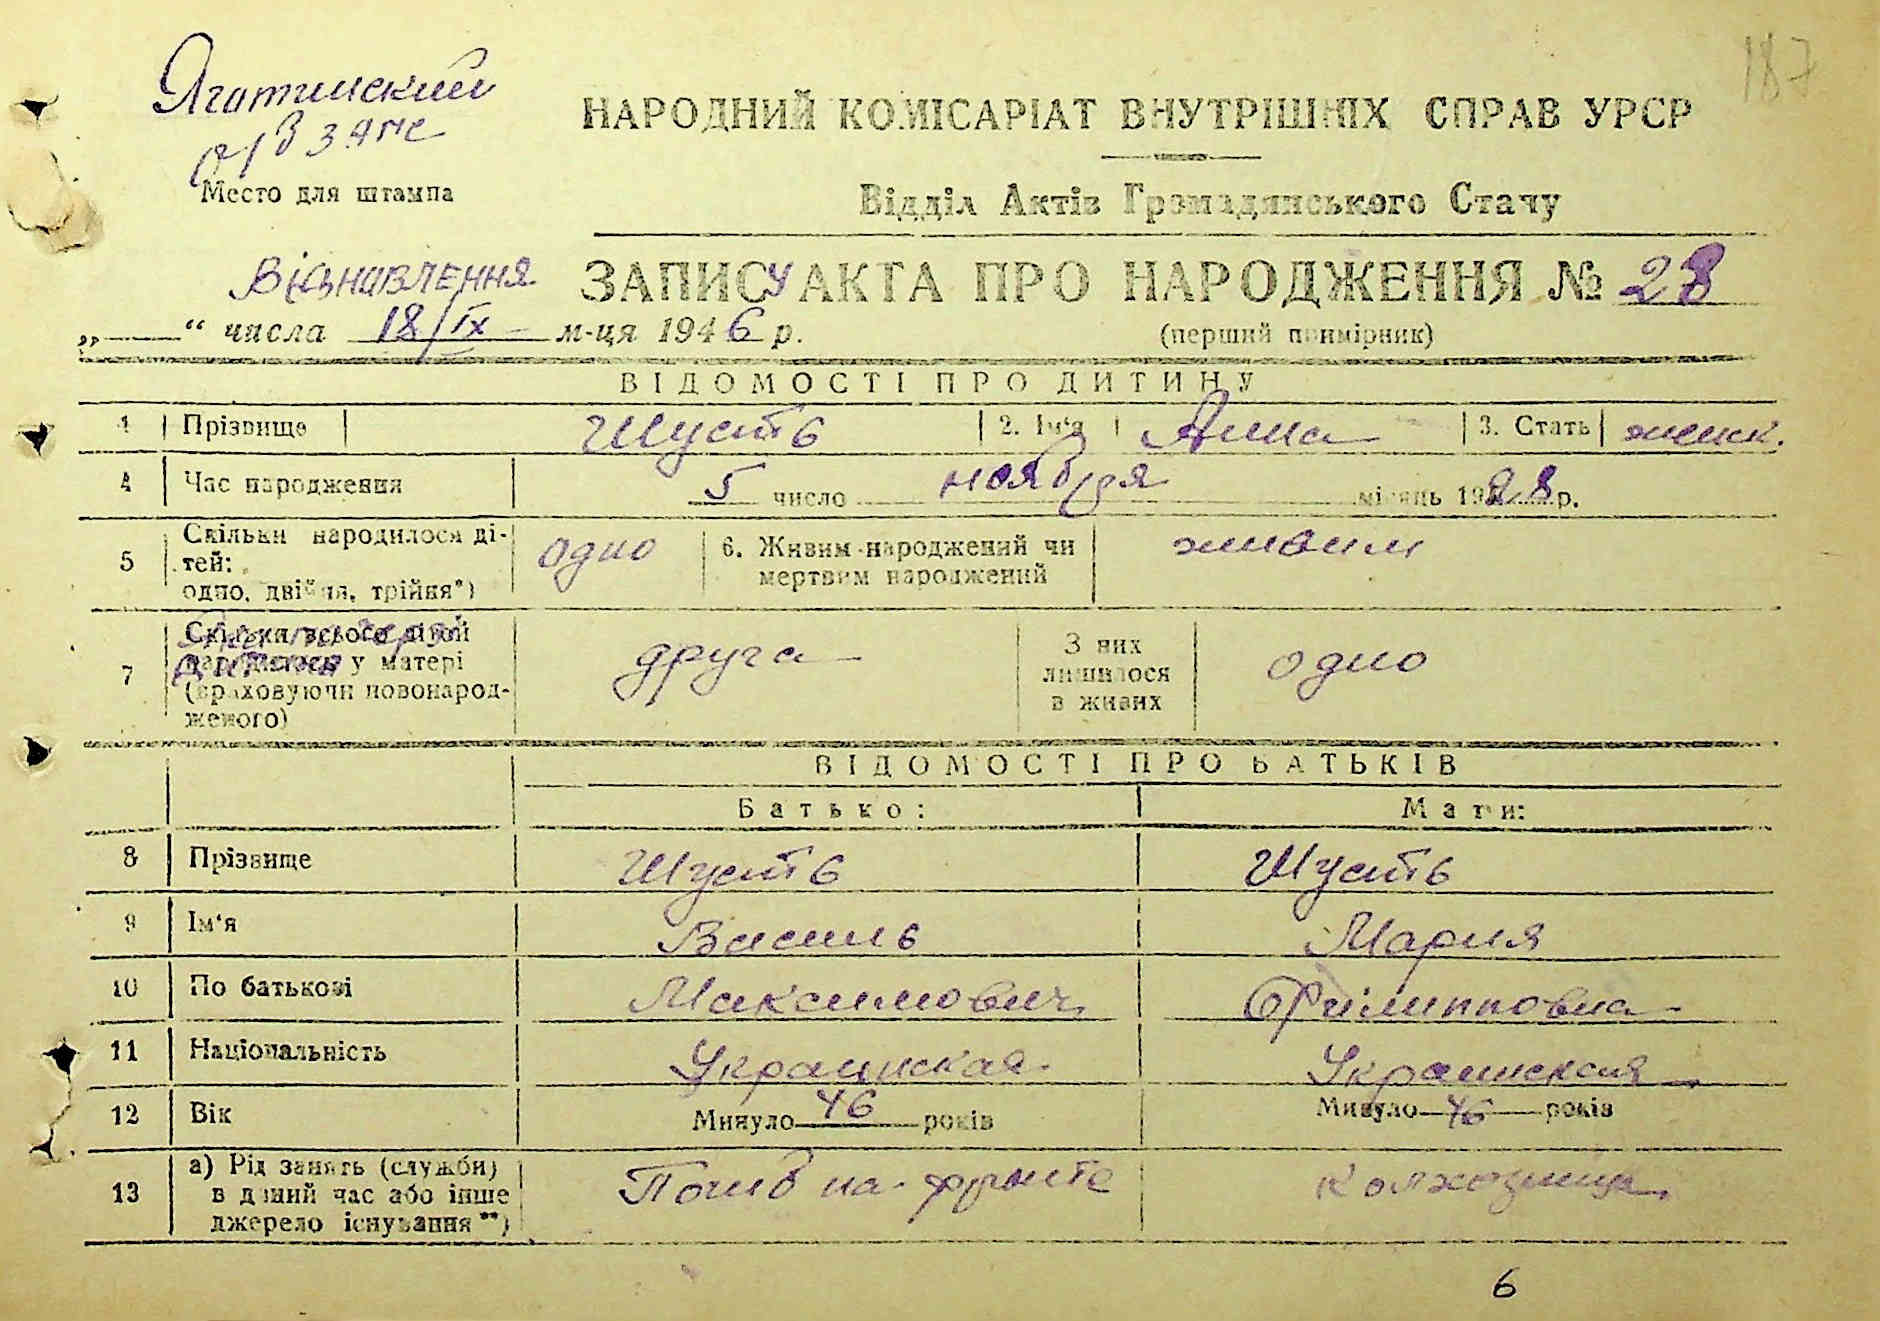 187
Яготинский
р/в загс
Место для штампа
НАРОДНИЙ КОМІСАРІАТ ВНУТРІШНІХ СПРАВ УРСР
Відділ Актів Громадянського Стану
Відновлення ЗАПИСУ АКТА ПРО НАРОДЖЕННЯ № 28
„ “ числа 18/IX м-ця 1946 р. (перший примірник)
ВІДОМОСТІ ПРО ДИТИНУ
1 Прізвище Шусть 2. Ім‘я Анна 3. Стать женск.
4 Час народження 5 число ноября місяць 1928 р.
5 Скільки народилося ді-
тей:
одно, двійня, трійня*)
одно 6. Живим народжений чи
мертвим народжений
живим
7 Скільки всього дітей
народилось у матері
(враховуючи новонарод-
женого)
друга
З них
лишилося
в живих
одно
ВІДОМОСТІ ПРО БАТЬКІВ
Батько: Мати:
8 Прізвище Шусть Шусть
9 Ім‘я Василь Мария
10 По батькові Максимович Филипповна
11 Національність Украинская Украинская
12 Вік Минуло 46 років Минуло 46 років
13 а) Рід занять (служби)
в даний час або інше
джерело існування**)
Погиб на фронте колхозница
6